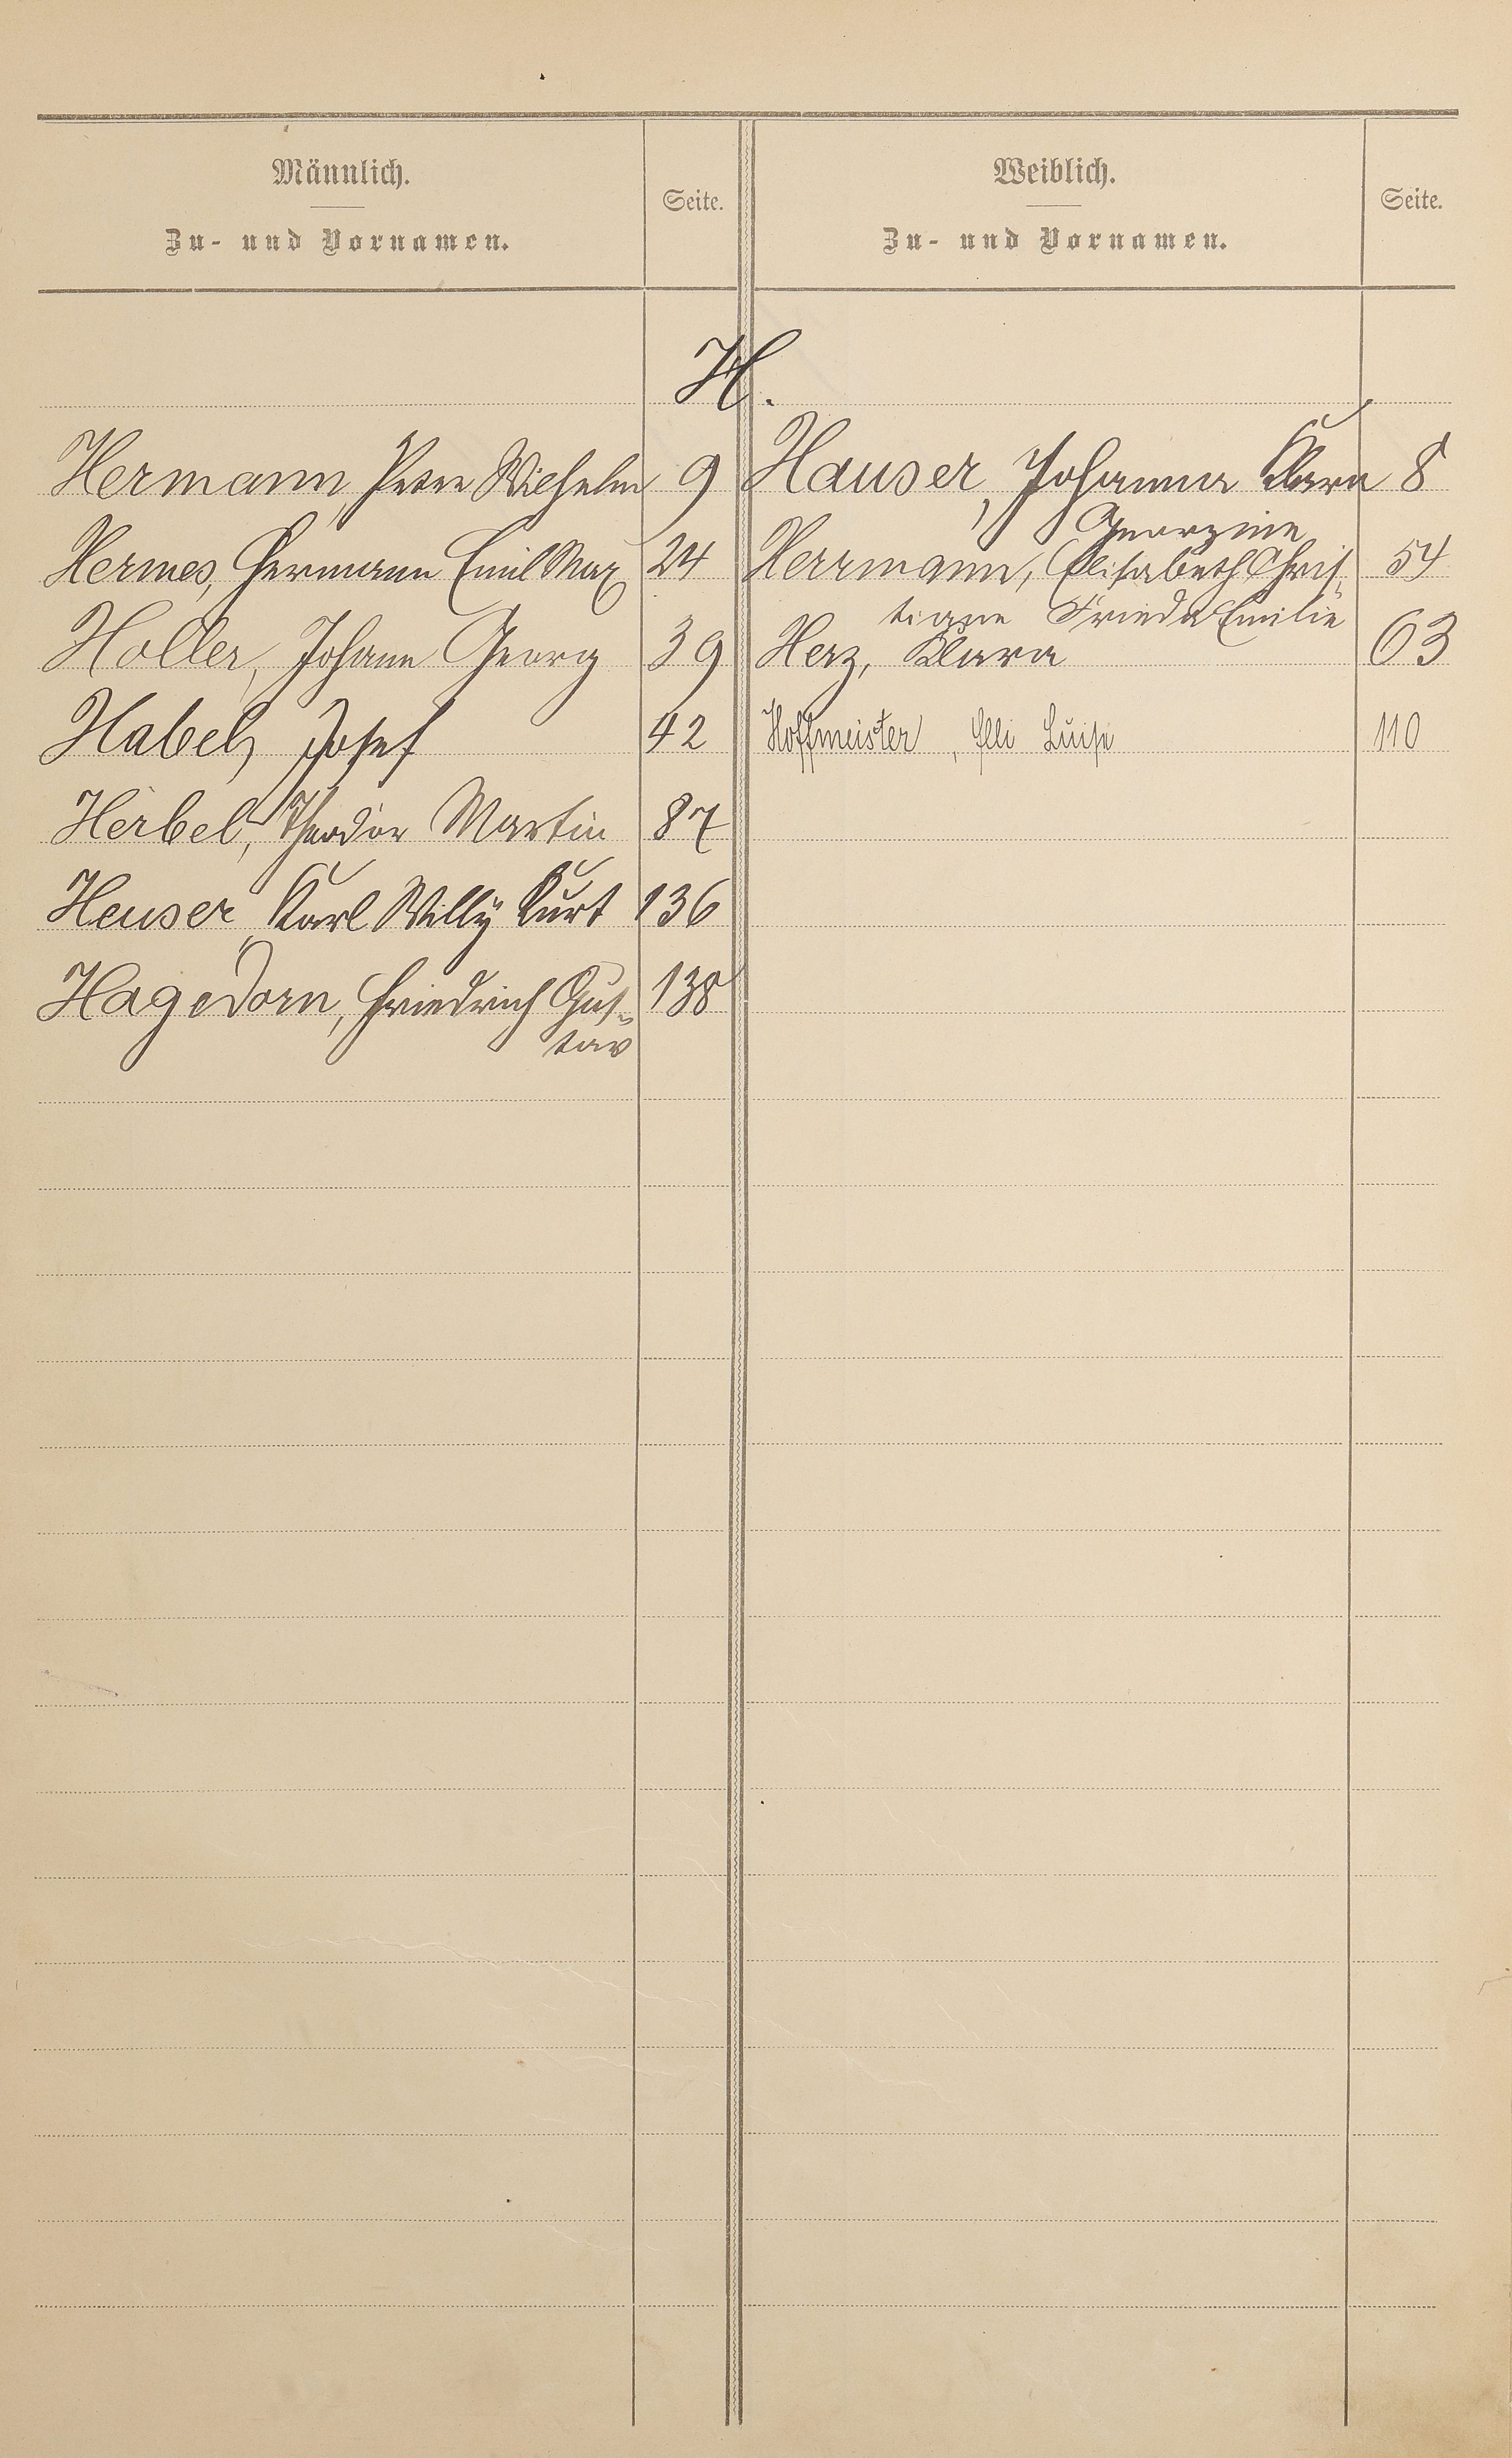 Männlich.
Zu- und Vornamen.
Seite.
Weiblich.
Zu- und Vornamen.
Seite.
H.
Hermann, Peter Wilhelm 9
Hermes, Hermann Emil Max 24
Holler, Johann Georg 39
Habel, Josef 42
Herbel, Theodor Martin 87
Heuser Karl Willy Kurt 136
Hagedorn, Friedrich Gus-
tav 138
Hauser, Johanna Klara 8
Georgine
Herrmann, Elisabeth Chris- 54
tiane Frieda Emilie
Herz, Klara 63
Hoffmeister, Elli Luise 110